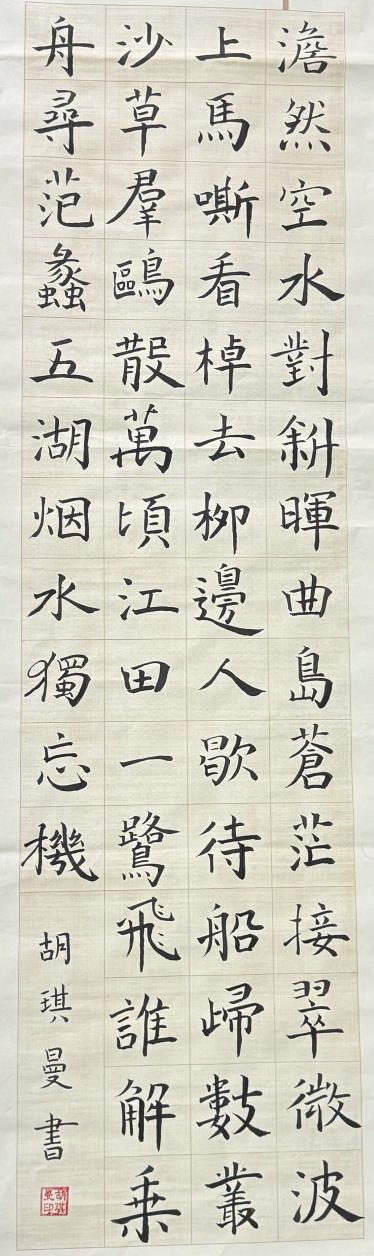 澹然空水對斜暉曲島蒼茫接翠微波
上馬嘶看棹去柳邊人歇待船歸數叢
沙草羣鷗散萬頃江田一鷺飛誰解乘
舟尋范蠡五湖烟水獨忘機
胡琪曼書
胡琪曼印